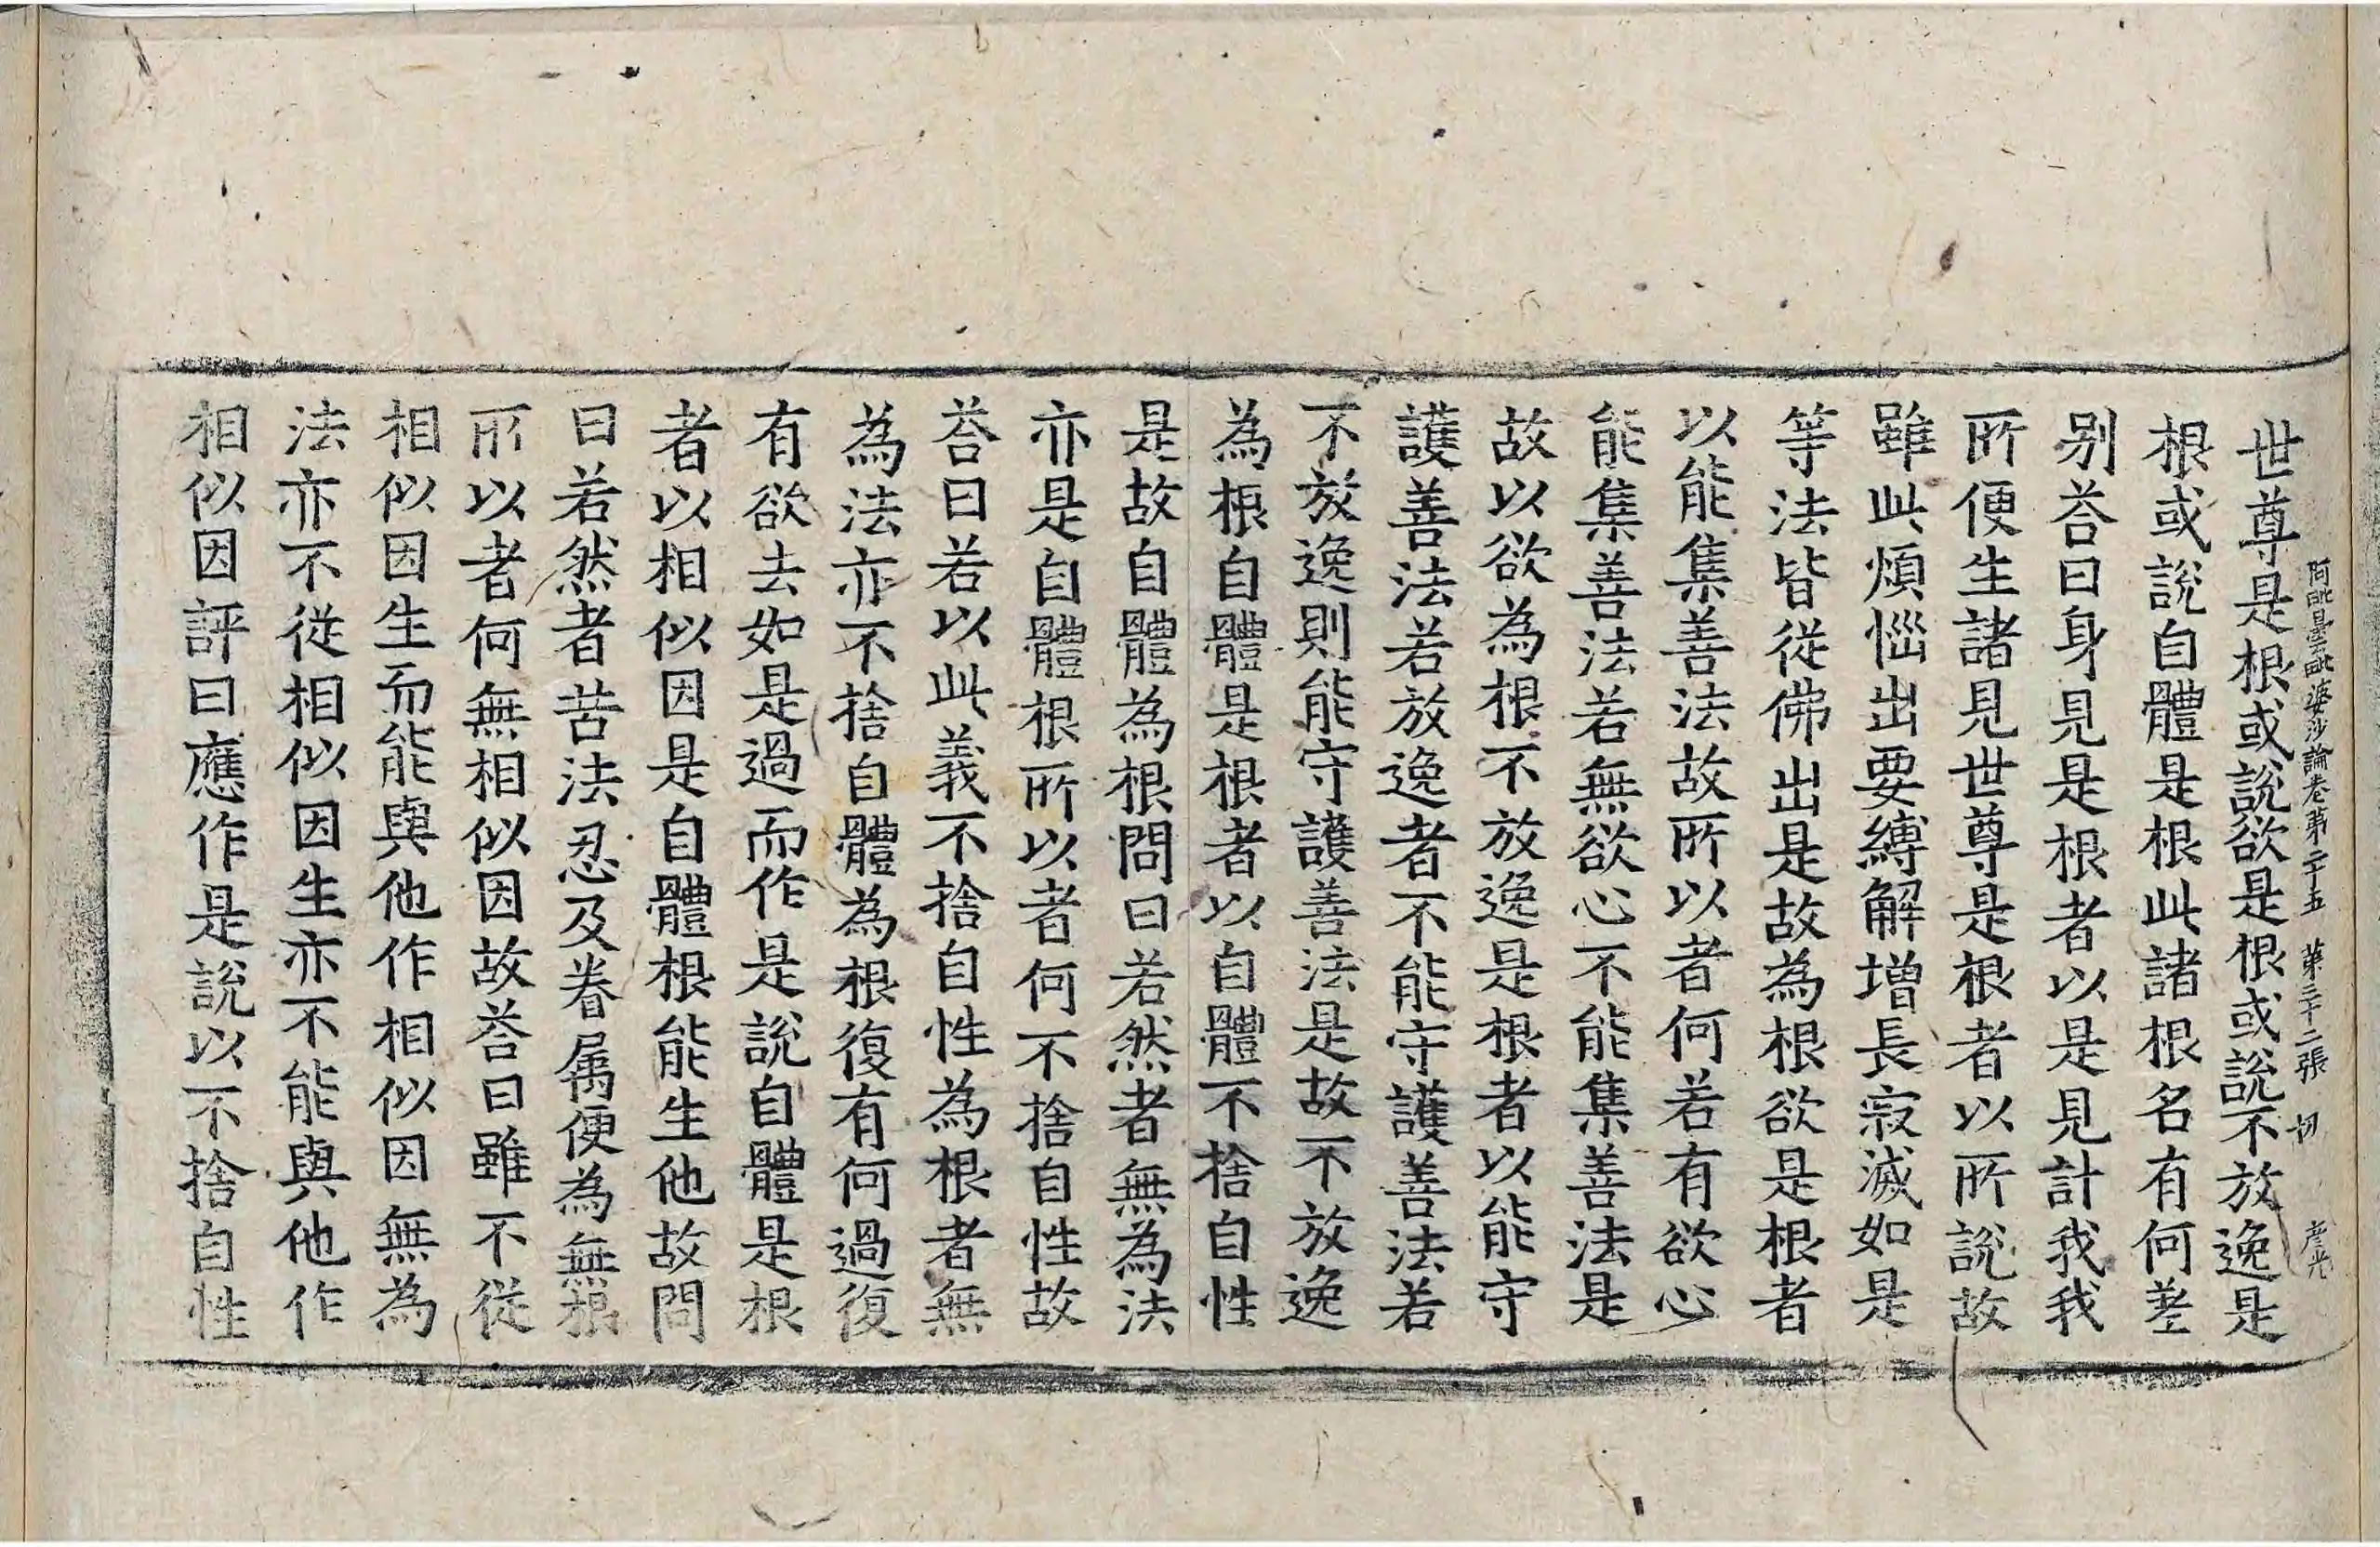 阿毗曇毗婆沙論卷第二十五 第三十二張 切 彥光
世尊是根或說欲是根或說不放逸是
根或說自體是根此諸根名有何差
別荅曰身見是根者以是見計我我
所便生諸見世尊是根者以所說故
雖此煩惱出要縛解增長寂滅如是
等法皆從佛出是故為根欲是根者
以能集善法故所以者何若有欲心
能集善法若無欲心不能集善法是
故以欲為根不放逸是根者以能守
護善法若放逸者不能守護善法若
不放逸則能守護善法是故不放逸
為根自體是根者以自體不捨自性
是故自體為根問曰若然者無為法
亦是自體根所以者何不捨自性故
荅曰若以此義不捨自性為根者無
為法亦不捨自體為根復有何過復
有欲去如是過而作是說自體是根
者以相似因是自體根能生他故問
曰若然者苦法忍及眷属便為無根
所以者何無相似因故荅曰雖不從
相似因生而能與他作相似因無為
法亦不從相似因生亦不能與他作
相似因評曰應作是說以不捨自性